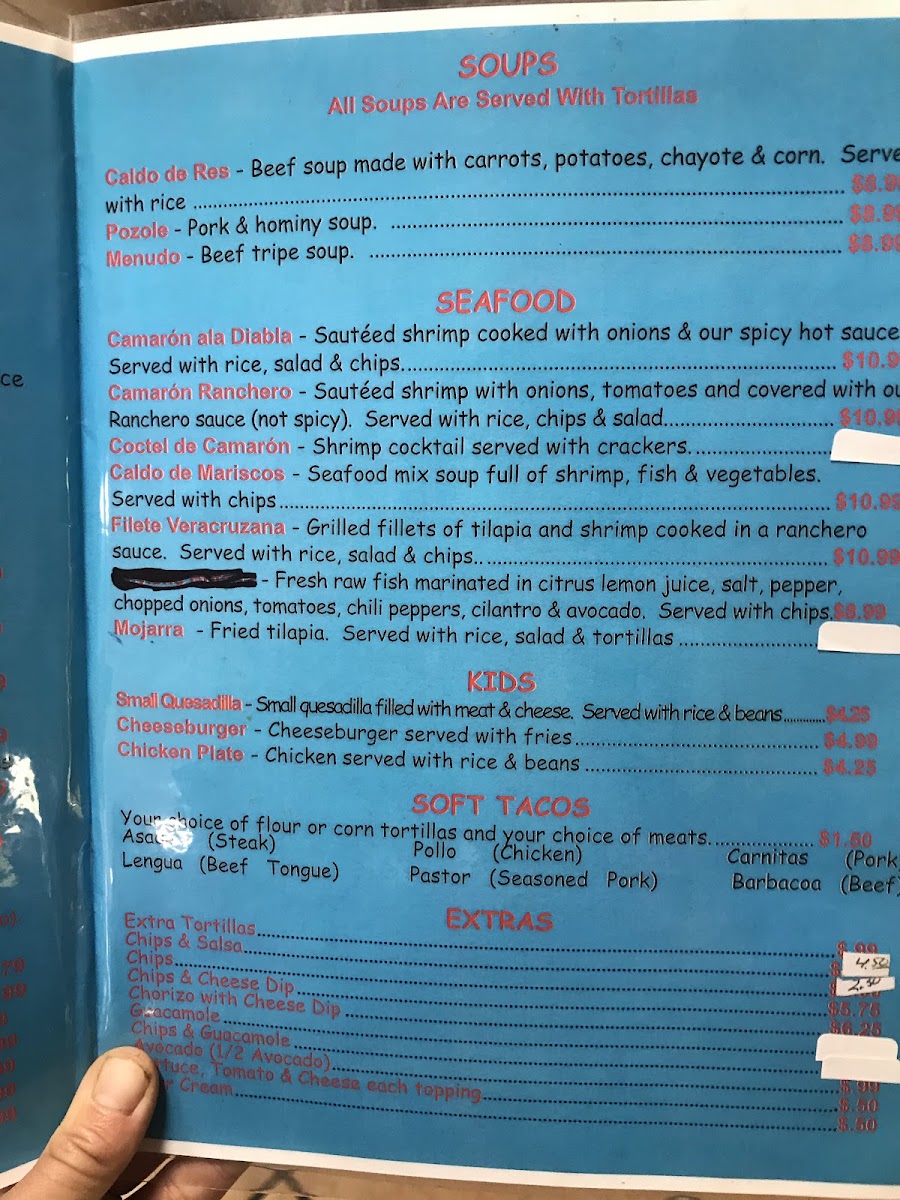 SOUPS
All Soups Are Served With Tortillas
Caldo de Res - Beef soup made with carrots, potatoes, chayote & corn. Serve
with rice ........ $8.9
Pozole - Pork & hominy soup. ........ $8.99
Menudo - Beef tripe soup. ........ $8.99
SEAFOOD
Camarón ala Diabla - Sautéed shrimp cooked with onions & our spicy hot sauce
Served with rice, salad & chips........ $10.9
Camarón Ranchero - Sautéed shrimp with onions, tomatoes and covered with ou
Ranchero sauce (not spicy). Served with rice, chips & salad........ $10.99
Coctel de Camarón - Shrimp cocktail served with crackers........
Caldo de Mariscos - Seafood mix soup full of shrimp, fish & vegetables.
Served with chips........ $10.99
Filete Veracruzana - Grilled fillets of tilapia and shrimp cooked in a ranchero
sauce. Served with rice, salad & chips........ $10.99
- Fresh raw fish marinated in citrus lemon juice, salt, pepper,
chopped onions, tomatoes, chili peppers, cilantro & avocado. Served with chips.$8.99
Mojarra - Fried tilapia. Served with rice, salad & tortillas ........
KIDS
Small Quesadilla - Small quesadilla filled with meat & cheese. Served with rice & beans........$4.25
Cheeseburger - Cheeseburger served with fries........ $4.99
Chicken Plate - Chicken served with rice & beans ........ $4.25
SOFT TACOS
Your choice of flour or corn tortillas and your choice of meats........ $1.50
(Steak) Pollo (Chicken) Carnitas (Pork
Lengua (Beef Tongue) Pastor (Seasoned Pork) Barbacoa (Beef)
EXTRAS
Extra Tortillas........ $.99
Chips & Salsa........ 4.50
Chips........ 2.50
Chips & Cheese Dip........ $5.75
Chorizo with Cheese Dip ........ $6.25
Guacamole........
Chips & Guacamole ........
Avocado (1/2 Avocado)........ $.99
Tomato & Cheese each topping........ $.50
Cream........ $.50
ce